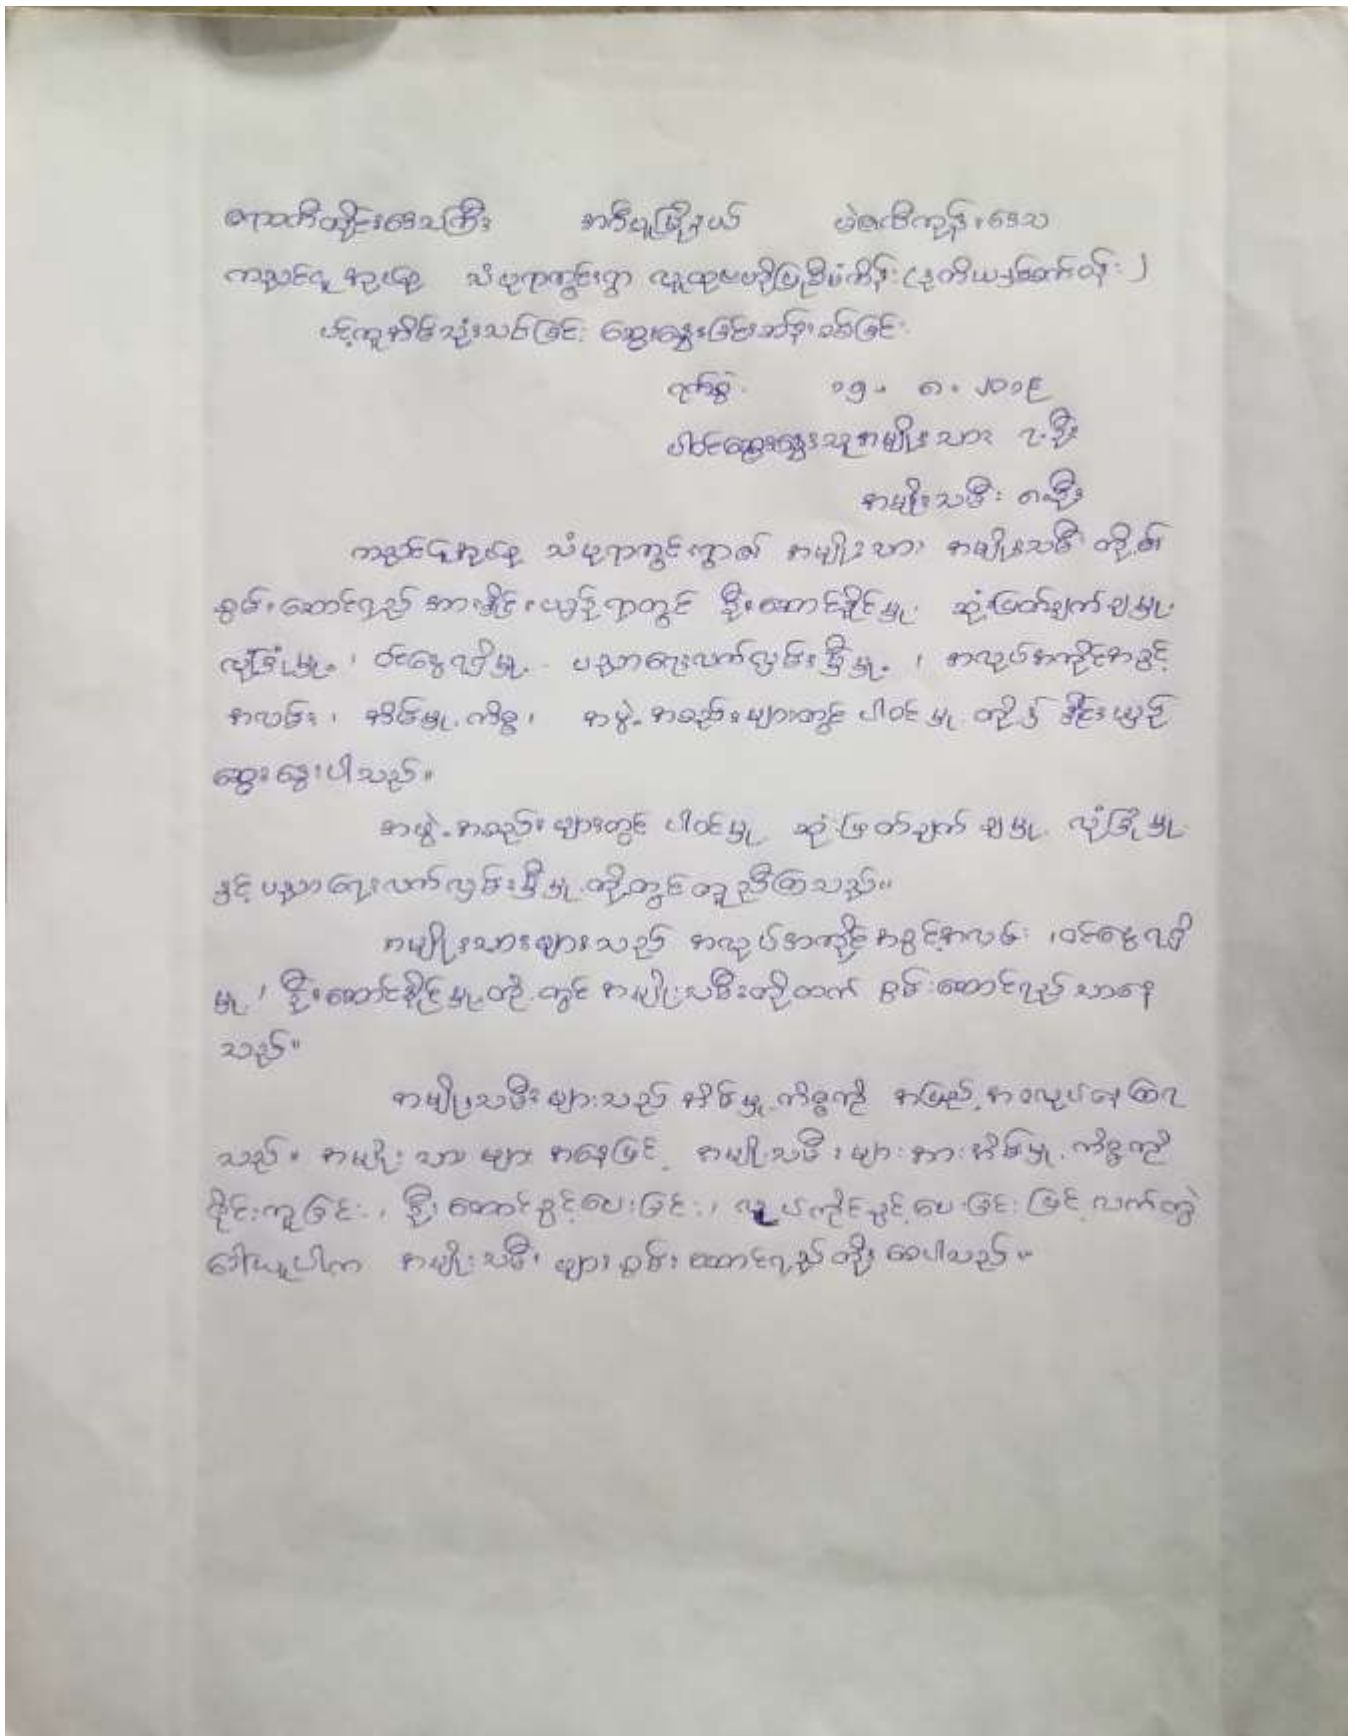 ဧရာဝတီတိုင်းဒေသကြီး အင်္ဂပူမြို့နယ် မဲဇလီကုန်းဒေသ
ကညင်ငူ အုပ်စု သံပုရာကွင်းရွာ လူထုဗဟိုပြုစီမံကိန်း (ဒုတိယနှစ်ဆက်တန်း)
ပင့်ကူအိမ်သုံးသပ်ခြင်း ဆွေးနွေးခြင်းခင်းခြင်း
ရက်စွဲ ၁၅. ၈. ၂၀၁၉
ပါဝင်ဆွေးနွေးသူအမျိုးသား ၇ ဦး
အမျိုးသမီး ၈ ဦး
ကညင်ငူအုပ်စု သံပုရာကွင်းရွာ၏ အမျိုးသား အမျိုးသမီး တို့၏
စွမ်းဆောင်ရည် အားနှိုင်းယှဉ်ရာတွင် ဦးဆောင်နိုင်မှု၊ ဆုံးဖြတ်ချက်ချမှု၊
လုံခြုံမှု၊ ဝင်ငွေရရှိမှု၊ ပညာရေးလက်လှမ်းမှီမှု၊ အလုပ်အကိုင်အခွင့်
အလမ်း၊ အိမ်မှုကိစ္စ၊ အဖွဲ့အစည်းများတွင် ပါဝင်မှု တို့ကို နှိုင်းယှဉ်
ဆွေးနွေးပါသည်။
အဖွဲ့အစည်းများတွင် ပါဝင်မှု ဆုံးဖြတ်ချက် ချမှု လုံခြုံမှု
နှင့် ပညာရေးလက်လှမ်းမှီမှု တို့တွင်တူညီကြသည်။
အမျိုးသားများသည် အလုပ်အကိုင်အခွင့်အလမ်း ၊ဝင်ငွေရရှိ
မှု၊ ဦးဆောင်နိုင်မှုတို့တွင် အမျိုးသမီးတို့ထက် စွမ်းဆောင်ရည် သာနေ
သည်။
အမျိုးသမီးများသည် အိမ်မှုကိစ္စကို အပြည့်အဝလုပ်နေကြရ
သည်။ အမျိုးသားများ အနေဖြင့် အမျိုးသမီးများအားအိမ်မှုကိစ္စကို
ဝိုင်းကူခြင်း၊ ဦးဆောင်ခွင့်ပေးခြင်း၊ လုပ်ကိုင်ခွင့်ပေးခြင်းဖြင့် လက်တွဲ
ခေါ်ယူပါက အမျိုးသမီးများစွမ်းဆောင်ရည်တိုးစေပါသည်။